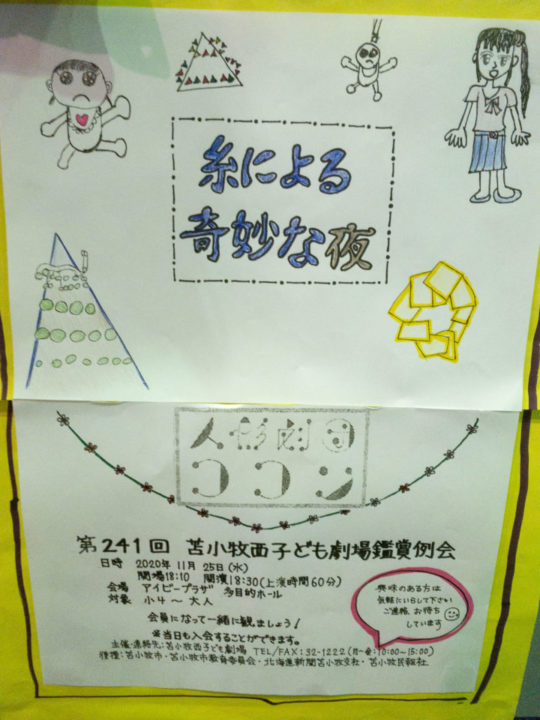 糸による
奇妙な夜
人形劇団
ココン
第241回 苫小牧西子ども劇場鑑賞例会
日時 2020年11月25日(水)
開場18:10 開演18:30(上演時間60分)
会場 アイビープラザ 多目的ホール
対象 小4〜大人
会員になって一緒に観ましょう!
※当日も入会することができます。
主催・連絡先:苫小牧西子ども劇場 TEL/FAX:32-1222(月〜金:10:00〜15:00)
後援:苫小牧市・苫小牧市教育委員会・北海道新聞苫小牧支社・苫小牧民報社
興味のある方は
気軽にいらして下さい
ご連絡、お待ち
しています